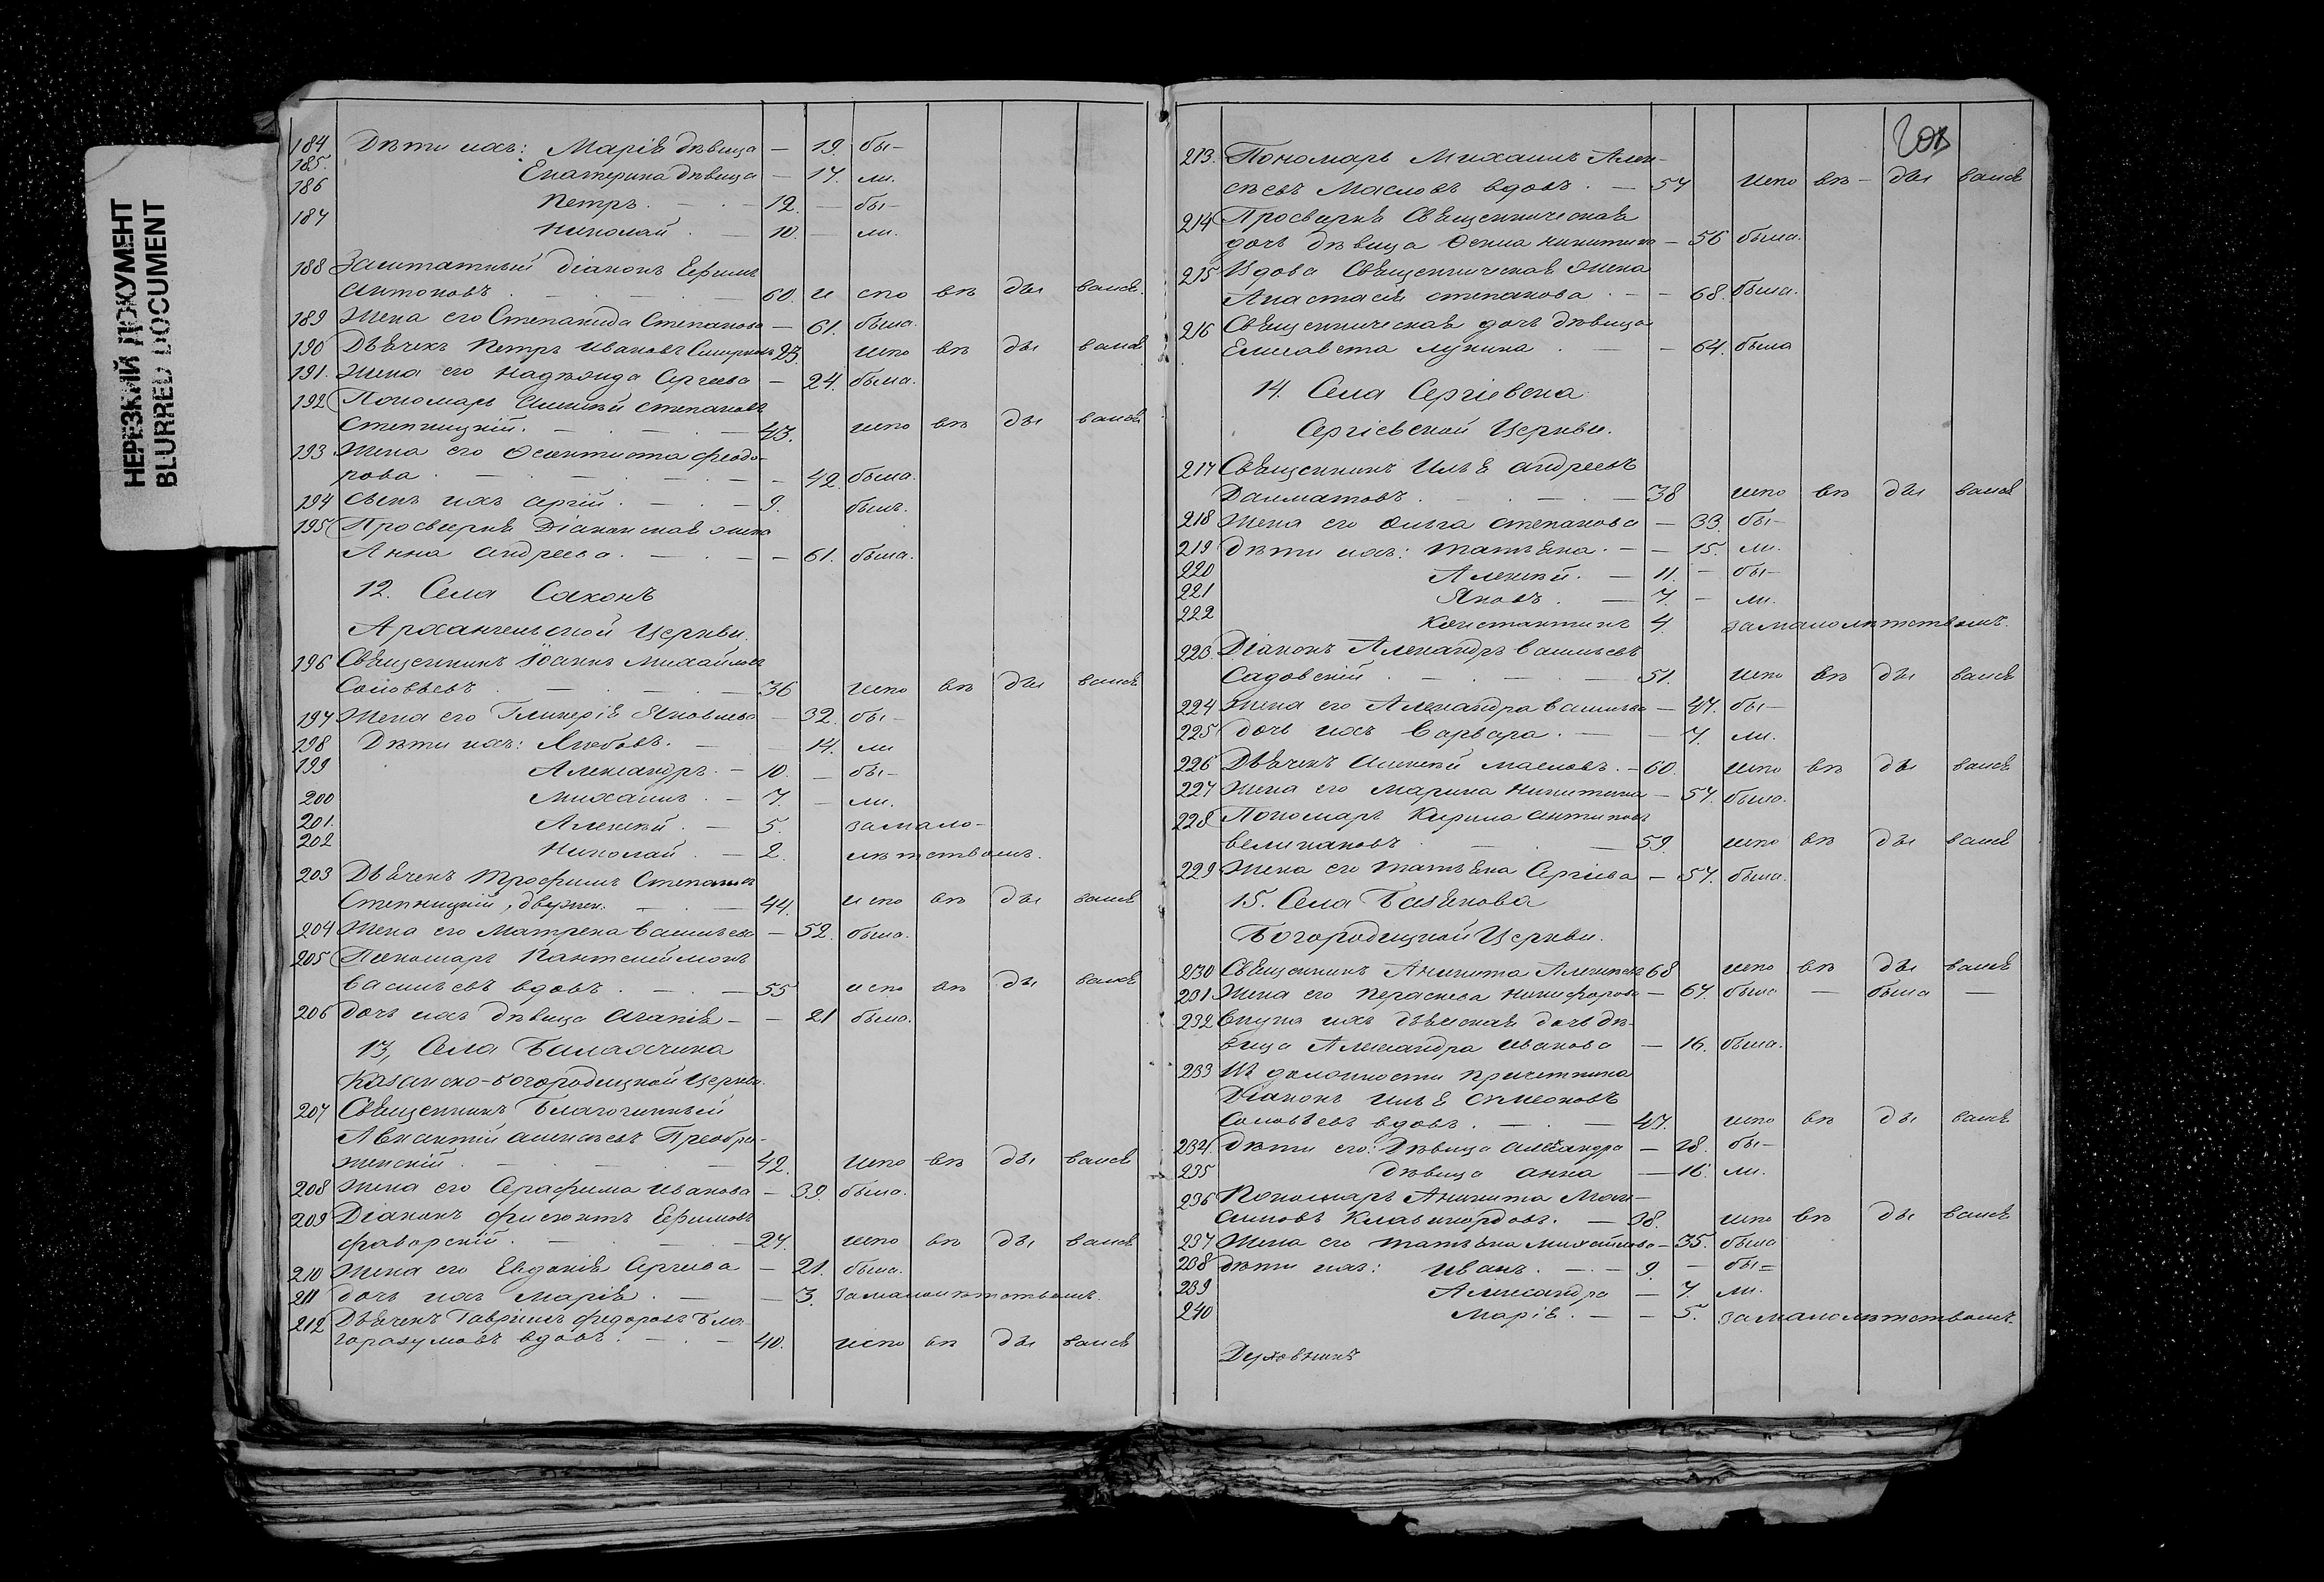 НЕРЕЗКИЙ ДОКУМЕНТ
BLURRED DOCUMENT
184 Дѣти ихъ: Марія дѣвица — 19. бы-
185. Екатерина дѣвица — 17. ли.
186 Петръ. — 12. — бы-
187 Николай. — 10. — ли.
188 Заштатный діаконъ Ефимъ
Антоновъ 60. и спо вѣ ды вался.
189 Жена его Степанида Степанова — 61. была.
190 Дьячекъ Петръ Ивановъ Смирновъ 23. испо вѣ ды вался
191. Жена его Надѣжда Сергеева — 24. была.
192 Пономарь Алексѣй Степановъ
Степницкій. — 43. испо вѣ ды вался
193 Жена его Ѳеоктиста Феодо-
рова — 42. была.
194 Сынъ ихъ Сергій. — 9. былъ.
195 Просвирня Діаконская жена
Анна Андреева. — 61. была.
12. Села Саконъ
Архангельской Церкви.
196 Священникъ Іоаннъ Михайловъ
Соловьевъ — 36 испо вѣ ды вался
197 Жена его Гликерія Яковлева — 32. бы-
198 Дѣти ихъ: Любовь. — 14. ли
199 Александръ. — 10. — бы-
200 Михаилъ. — 7. — ли.
201. Алексѣй. — 5. за мало-
202 Николай. — 2. лѣтствомъ.
203 Дьячекъ Трофимъ Степановъ
Степницкій, дворжен. — 44. испо вѣ ды вался
204 Жена его Матрена Васильева — 52. была.
205 Пономарь Пантелеймонъ
Васильевъ вдовъ. — 55 испо вѣ ды вался
206 Дочь ихъ дѣвица Агапія — 21 была.
13, Села Балахчина
Казанско-Богородицкой Церкви.
207 Священникъ Благочинный
Авксентій Алексѣевъ Преобра-
женскій. — 42. испо вѣ ды вался
208 Жена его Серафима Иванова — 39. была.
209 Діаконъ Ефимовъ
Фаворскій. — 27. испо вѣ ды вался
210 Жена его Евдокія Сергеева — 21. была.
211 Дочь ихъ Марія. — 3. за малолѣтствомъ.
212 Дьячекъ Гавріилъ Федоровъ Бла-
горазумовъ вдовъ. — 40. испо вѣ ды вался
213. Пономарь Михаилъ Алек-
сѣевъ Масловъ вдовъ. — 54 испо вѣ- ды вался
214 Просвирня Священническая
дочь дѣвица Ѳекла Никитина — 56 была.
215 Вдова Священническая жена
Анастасія Степанова. — 68. была.
216 Священническая дочь дѣвица
Елисавета Лукина. — 64. была
14. Села Сергіевска
Сергіевской Церкви.
217 Священникъ Илья Андреевъ
Далматовъ. — 38 испо вѣ ды вался
218 Жена его Ольга Степанова — 33. бы-
219 Дѣти ихъ: Татьяна. — 15. ли.
220 Алексѣй. — 11. — бы-
221 Яковъ. — 7. — ли.
222 Константинъ 4. за малолѣтствомъ.
223. Діаконъ Александръ Васильевъ
Садовскій. — 51. испо вѣ ды вался
224 Жена его Александра Васильева — 47. бы-
225 дочь ихъ Варвара. — 7. ли.
226 Дьячекъ Алексѣй Масловъ. — 60. испо вѣ ды вался
227 Жена его Марина Никитина — 57. была.
228 Пономарь Кирила Антиповъ
Великановъ. — 59. испо вѣ ды вался
229 Жена его Татьяна Сергіева — 57. была.
15. Села Базякова
Богородицкой Церкви.
230 Священникъ Аникита Алексѣевъ 68 испо вѣ ды вался
231 Жена его Пераскева Никифорова — 67. была — была —
232 Внука ихъ дьяческая дочь дѣ-
вица Александра Иванова — 16. была.
233 На должности причетника
Діаконъ Илья Симеоновъ
Соловьевъ вдовъ. — 47. испо вѣ ды вался
234. Дѣти его: Дѣвица Александра — 18. бы-
235 дѣвица Анна — 16. ли.
236 Пономарь Аникита Мак-
симовъ Клавикордовъ. — 38. испо вѣ ды вался
237 Жена его Татьяна Михайлова — 35. была
238 Дѣти ихъ: Иванъ. — 9. — бы=
239 Александра — 7. ли.
240 Марія. — 5. за малолѣтствомъ.
Духовникъ